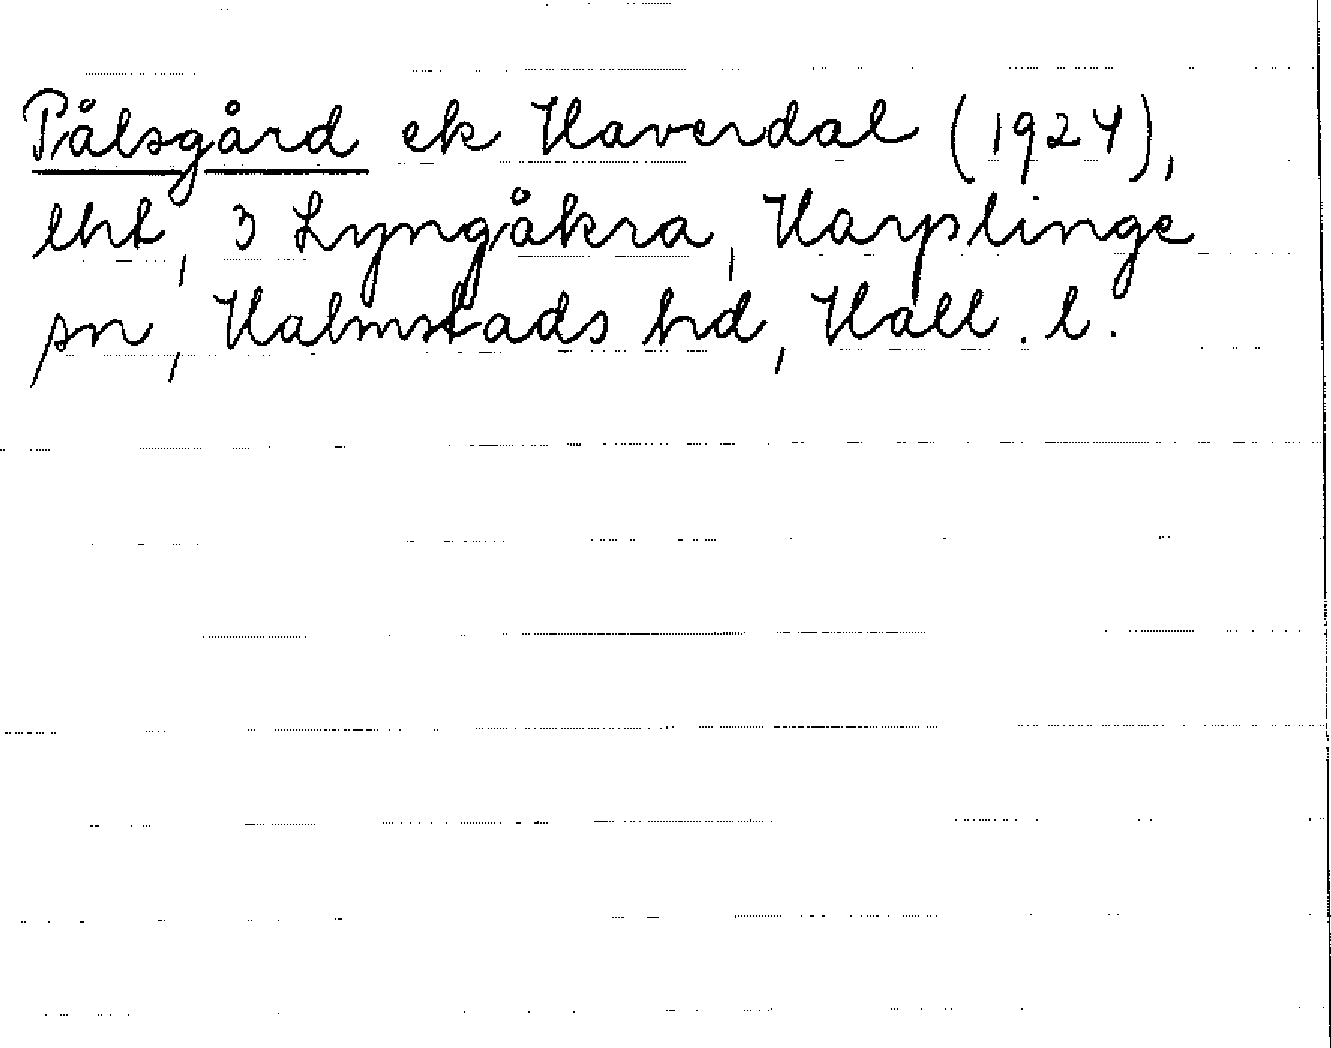 Pålsgård ek Haverdal (1924),
lht, 3 Lyngåkra, Harplinge
sn, Halmstads hd, Hall. l.